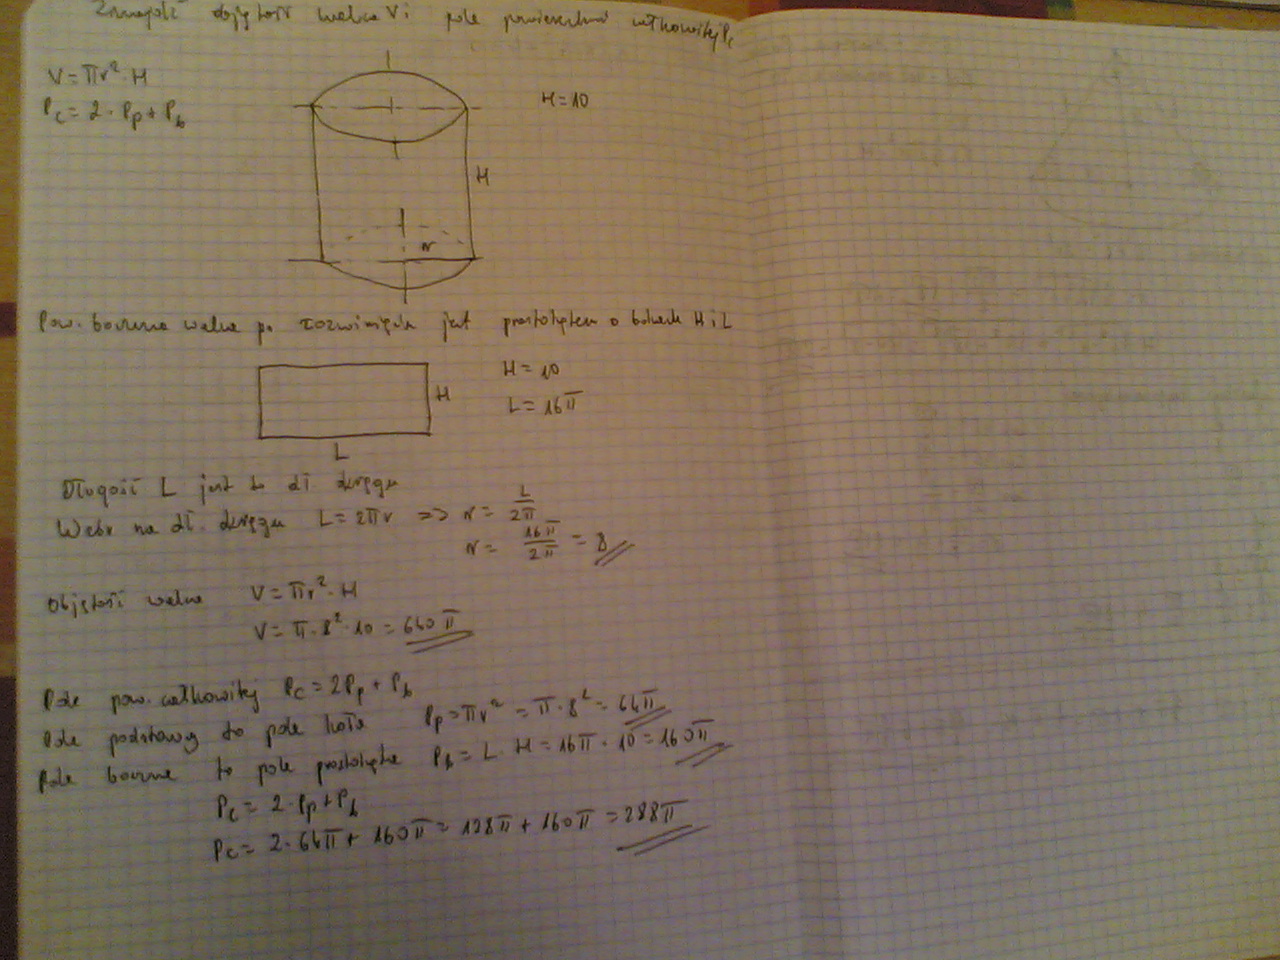 Znaleźć objętość walca V i pole powierzchni całkowitej Pc
V = πr² · H
Pc = 2 · Pp + Pb
H = 10
H
r
Pow. boczna walca po rozwinięciu jest prostokątem o bokach H i L
H = 10
H
L = 16π
L
Długość L jest to dł okręgu
Wzór na dł. okręgu L = 2πr => r = L/2π
r = 16π/2π = 8
Objętość walca V = πr² · H
V = π · 8² · 10 = 640π
Pole pow. całkowitej Pc = 2Pp + Pb
Pole podstawy to pole koła Pp = πr² = π · 8² = 64π
Pole boczne to pole prostokąta Pb = L · H = 16π · 10 = 160π
Pc = 2 · Pp + Pb
Pc = 2 · 64π + 160π = 128π + 160π = 288π